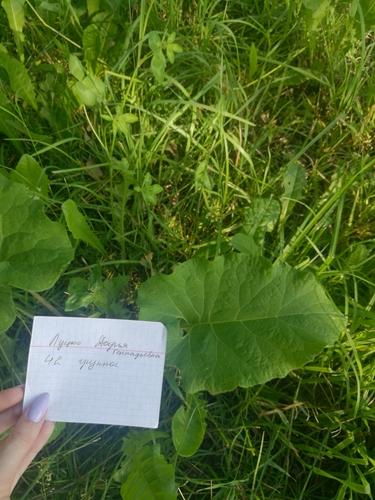 Луцко Дарья
Геннадьевна
42 группа